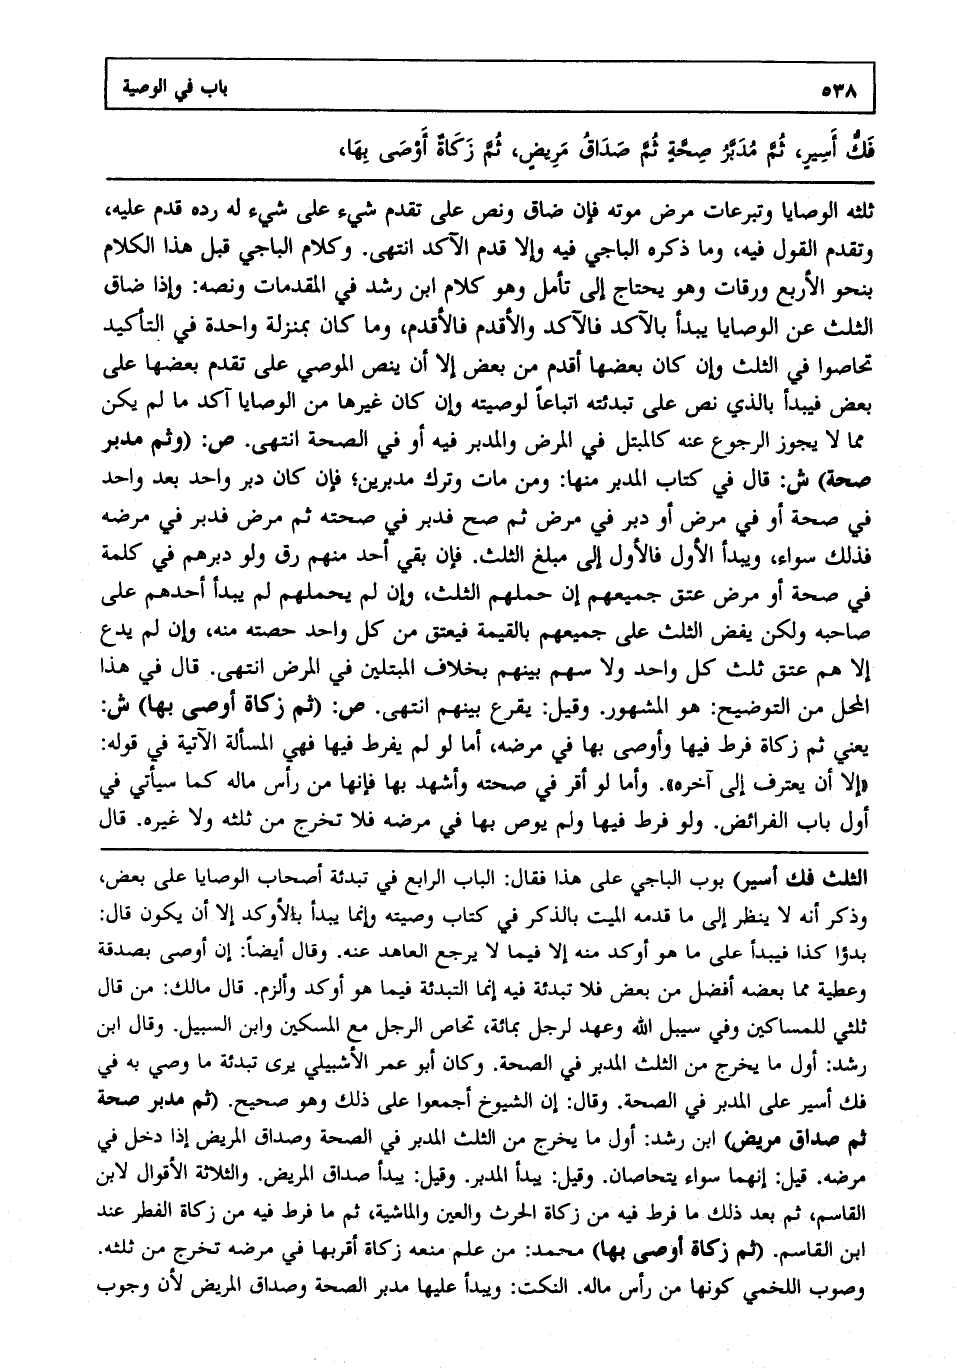 ٥٣٨ باب في الوصية
فَكُّ أَسِيرٍ، ثُمَّ مُدَبَّرُ صِحَّةٍ ثُمَّ صَدَاقُ مَرِيضٍ، ثُمَّ زَكَاةٌ أَوْصَى بِهَا،
ثلثه الوصايا وتبرعات مرض موته فإن ضاق ونص على تقدم شيء على شيء له رده قدم عليه،
وتقدم القول فيه، وما ذكره الباجي فيه وإلا قدم الآكد انتهى. وكلام الباجي قبل هذا الكلام
بنحو الأربع ورقات وهو يحتاج إلى تأمل وهو كلام ابن رشد في المقدمات ونصه: وإذا ضاق
الثلث عن الوصايا يبدأ بالآكد فالآكد والأقدم فالأقدم، وما كان بمنزلة واحدة في التأكيد
تحاصوا في الثلث وإن كان بعضها أقدم من بعض إلا أن ينص الموصي على تقدم بعضها على
بعض فيبدأ بالذي نص على تبدئته اتباعاً لوصيته وإن كان غيرها من الوصايا آكد ما لم يكن
مما لا يجوز الرجوع عنه كالمبتل في المرض والمدبر فيه أو في الصحة انتهى. ص: (وثم مدبر
صحة) ش: قال في كتاب المدبر منها: ومن مات وترك مدبرين؛ فإن كان دبر واحد بعد واحد
في صحة أو في مرض أو دبر في مرض ثم صح فدبر في صحته ثم مرض فدبر في مرضه
فذلك سواء، ويبدأ الأول فالأول إلى مبلغ الثلث. فإن بقي أحد منهم رق ولو دبرهم في كلمة
في صحة أو مرض عتق جميعهم إن حملهم الثلث، وإن لم يحملهم لم يبدأ أحدهم على
صاحبه ولكن يفض الثلث على جميعهم بالقيمة فيعتق من كل واحد حصته منه، وإن لم يدع
إلا هم عتق ثلث كل واحد ولا سهم بينهم بخلاف المبتلين في المرض انتهى. قال في هذا
المحل من التوضيح: هو المشهور. وقيل: يقرع بينهم انتهى. ص: (ثم زكاة أوصى بها) ش:
يعني ثم زكاة فرط فيها وأوصى بها في مرضه، أما لو لم يفرط فيها فهي المسألة الآتية في قوله:
«إلا أن يعترف إلى آخره». وأما لو أقر في صحته وأشهد بها فإنها من رأس ماله كما سيأتي في
أول باب الفرائض. ولو فرط فيها ولم يوص بها في مرضه فلا تخرج من ثلثه ولا غيره. قال
الثلث فك أسير) بوب الباجي على هذا فقال: الباب الرابع في تبدئة أصحاب الوصايا على بعض،
وذكر أنه لا ينظر إلى ما قدمه الميت بالذكر في كتاب وصيته وإنما يبدأ بالأوكد إلا أن يكون قال:
بدؤا كذا فيبدأ على ما هو أوكد منه إلا فيما لا يرجع العاهد عنه. وقال أيضاً: إن أوصى بصدقة
وعطية مما بعضه أفضل من بعض فلا تبدئة فيه إنما التبدئة فيما هو أوكد وألزم. قال مالك: من قال
ثلثي للمساكين وفي سبيل الله وعهد لرجل بمائة، تحاص الرجل مع المسكين وابن السبيل. وقال ابن
رشد: أول ما يخرج من الثلث المدبر في الصحة. وكان أبو عمر الأشبيلي يرى تبدئة ما وصي به في
فك أسير على المدبر في الصحة. وقال: إن الشيوخ أجمعوا على ذلك وهو صحيح. (ثم مدبر صحة
ثم صداق مريض) ابن رشد: أول ما يخرج من الثلث المدبر في الصحة وصداق المريض إذا دخل في
مرضه. قيل: إنهما سواء يتحاصان. وقيل: يبدأ المدبر. وقيل: يبدأ صداق المريض. والثلاثة الأقوال لابن
القاسم، ثم بعد ذلك ما فرط فيه من زكاة الحرث والعين والماشية، ثم ما فرط فيه من زكاة الفطر عند
ابن القاسم. (ثم زكاة أوصى بها) محمد: من علم منعه زكاة أقربها في مرضه تخرج من ثلثه.
وصوب اللخمي كونها من رأس ماله. النكت: ويبدأ عليها مدبر الصحة وصداق المريض لأن وجوب